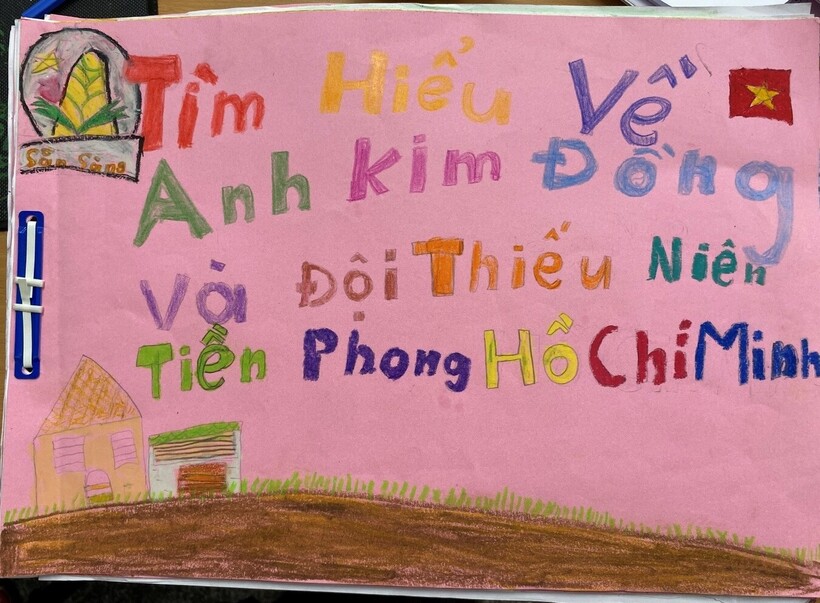 Tìm Hiểu Về
Sẵn Sàng
Anh Kim Đồng
Và Đội Thiếu Niên
Tiền Phong Hồ Chí Minh